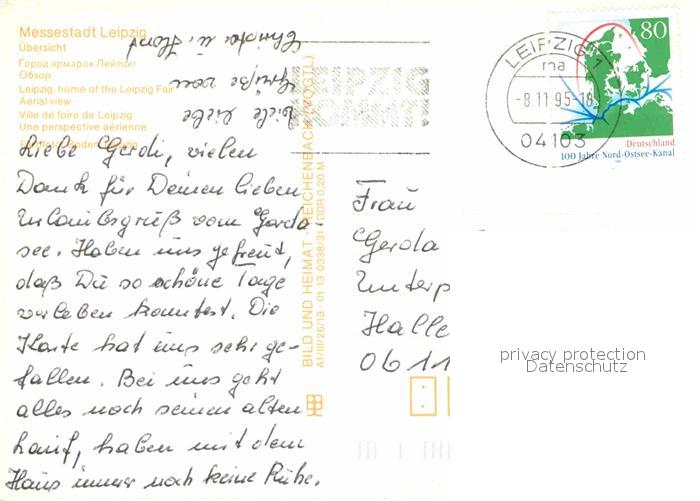 Messestadt Leipzig
Übersicht
Город ярмарок Лейпциг
Обзор
Leipzig, home of the Leipzig Fair
Aerial view
Ville de foire de Leipzig
Une perspective aérienne
Liebe Gerdi, vielen
Dank für Deinen lieben
Urlaubsgruß vom Garda-
see. Haben uns gefreut,
daß Du so schöne Tage
verleben konntest. Die
Karte hat uns sehr ge-
fallen. Bei uns geht
alles noch seinen alten
Lauf, haben mit dem
Haus immer noch keine Ruhe.
Viele liebe
Grüße von
Christa u. Horst
BILD UND HEIMAT REICHENBACH (VOGTL)
A1/III/26/13 01 13 0338/31 DDR 0,20 M
LEIPZIG
KOMMT!
LEIPZIG 1
ma
-8.11.95-18
04103
80
Deutschland
100 Jahre Nord-Ostsee-Kanal
Frau
Gerda
Unterp
Halle
0611
privacy protection
Datenschutz